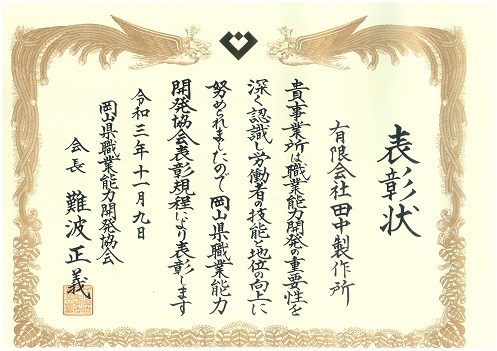 表彰状
有限会社田中製作所
貴事業所は職業能力開発の重要性を
深く認識し労働者の技能と地位の向上に
努められましたので岡山県職業能力
開発協会表彰規程により表彰します
令和三年十一月九日
岡山県職業能力開発協会
会長 難波正義